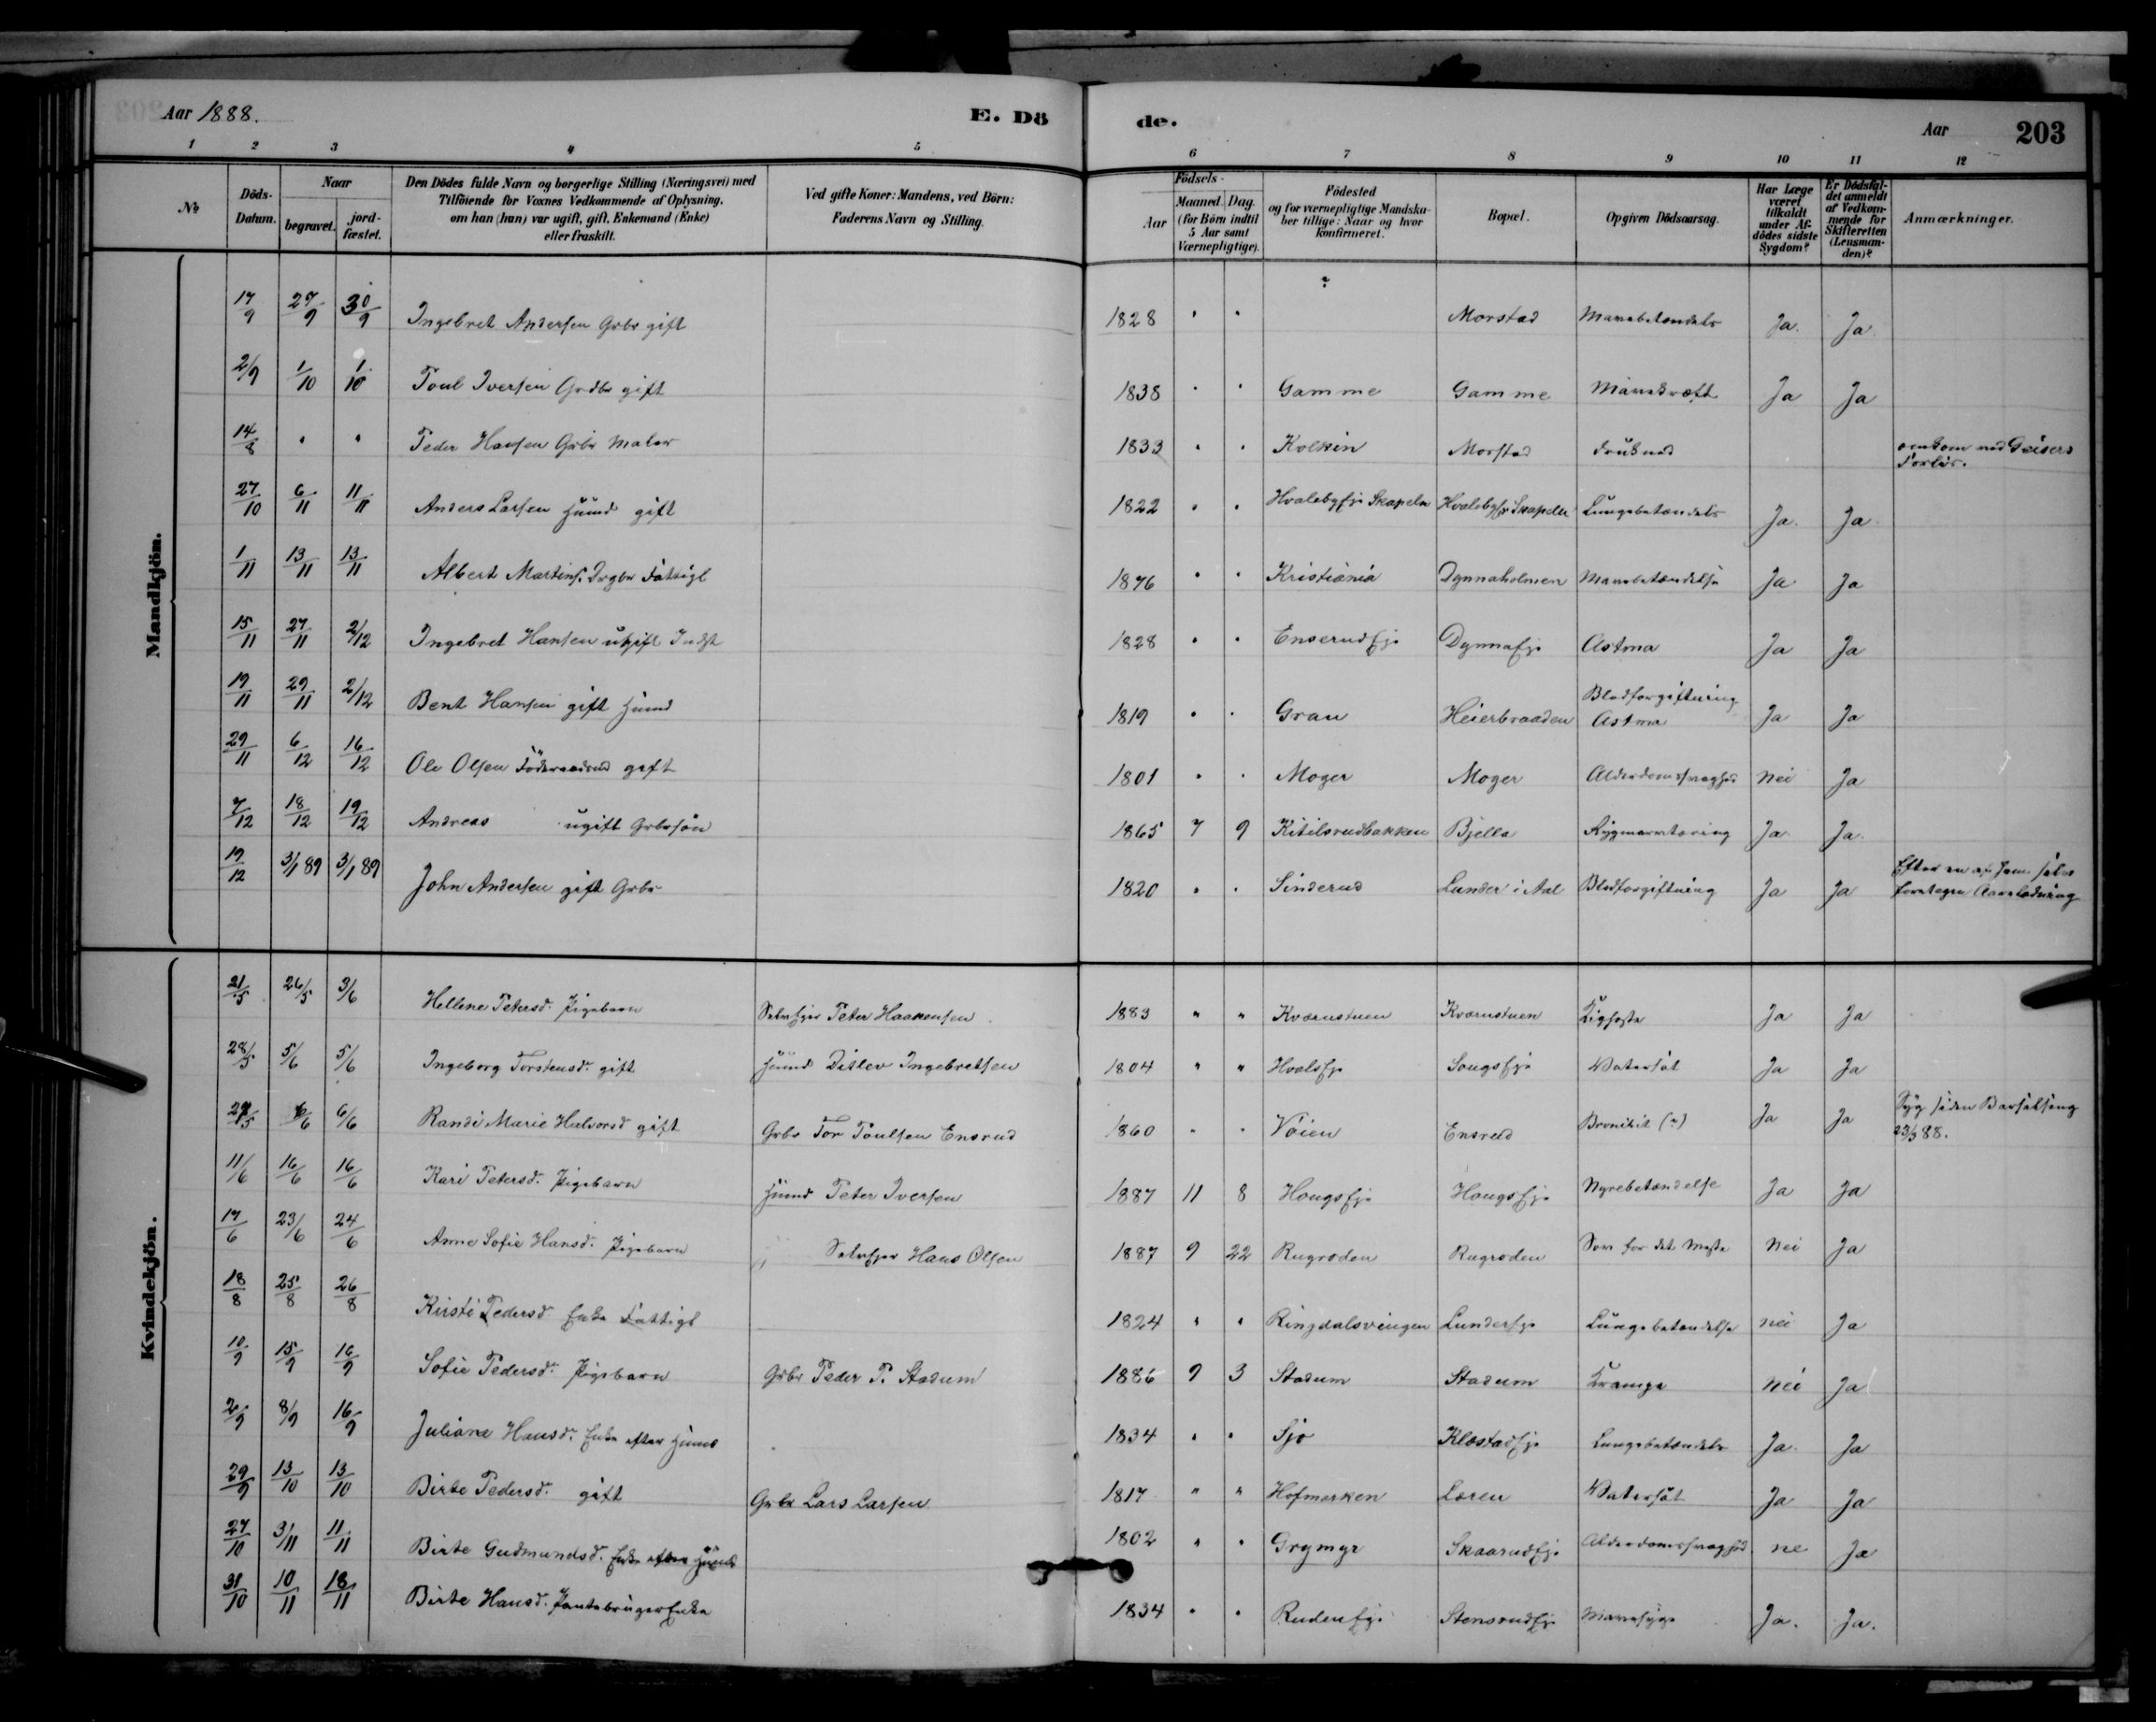 Aar 1888. E. Dö de. Aar 203
1 2 3 4 5 6 7 8 9 10 11 12
No
Döds-Datum.
Naar
begravet.
jord-fæstet.
Den Dödes fulde Navn og borgerlige Stilling (Næringsvei) med
Tilföiende for Voxnes Vedkommende af Oplysning,
om han (hun) var ugift, gift, Enkemand (Enke)
eller fraskilt.
Ved gifte Koner: Mandens, ved Börn:
Faderens Navn og Stilling.
Födsels-
Aar
Maaned. Dag.
(for Börn indtil
5 Aar samt
Værnepligtige).
Födested
og for værnepligtige Mandska-
ber tillige: Naar og hvor
konfirmeret.
Bopæl.
Opgiven Dödsaarsag.
Har Læge
været
tilkaldt
under Af-
dödes sidste
Sygdom?
Er Dödsfal-
det anmeldt
af Vedkom-
mende for
Skifteretten
(Lensman-
den)?
Anmærkninger.
Mandkjön.
17/9 27/9 30/9 Ingebret Andersen Grbr gift 1828 " " ? Morstad Mavebetændels Ja. Ja.
2/9 1/10 1/10 Poul Iversen Grdbr gift 1838 " " Gamme Gamme Mavekræft Ja Ja
14/8 " " Peder Hansen Grbr Maler 1833 " " Kolkin Morstad drukned omkom ved Geisers Forlis.
27/10 6/11 11/11 Anders Larsen Huusmd gift 1822 " " Hvalebyeje Skapeln Hvalebyeje Skapeln Lungebetændels Ja. Ja
1/11 13/11 13/11 Albert Martins. Fattigl 1876 " " Kristiania Dynnaholmen Mavebetændelse Ja Ja
15/11 27/11 2/12 Ingebret Hansen ugift Indst 1828 " " Enserudeje Dynnaeje Astma Ja Ja
19/11 29/11 2/12 Bent Hansen gift Husmd 1819 " " Gran Heierbraaden Blodforgiftning Astma Ja Ja
29/11 6/12 16/12 Ole Olsen Föderaadmd gift 1801 " " Moger Moger Alderdomssvaghed Nei Ja
7/12 18/12 19/12 Andreas ugift Grbrsön 1865 7 9 Kitilsrudbakken Bjella Rygmarvstæring Ja. Ja.
19/12 3/1 89 3/1 89 John Andersen gift Grbr 1820 " " Sinderud Lunder i Aal Blodforgiftning Ja Ja Efter en af ham selv foretagen Aareladning
Kvindekjön.
21/5 26/5 3/6 Hellene Petersd. Pigebarn Selveier Peter Haakensen 1883 " " Kværnstuen Kværnstuen Kighoste Ja Ja
28/5 5/6 5/6 Ingeborg Torstensd. gift Husmd Ditlev Ingebretsen 1804 " " Hvalseje Sougseje Vatersot Ja Ja
29/5 6/6 6/6 Randi Marie Halvorsd gift Grbr Tor Poulsen Ensrud 1860 " " Vöien Ensrud Bronikit (?) Ja Ja Syg siden Barselseng 23/3 88.
11/6 16/6 16/6 Kari Petersd. Pigebarn Husmd Peter Iversen 1887 11 8 Hougseje Hougseje Nyrebetændelse Ja Ja
17/6 23/6 24/6 Anne Sofie Hansd. Pigebarn Selveier Hans Olsen 1887 9 22 Rugroden Rugroden Sov for det meste Nei Ja
18/8 25/8 26/8 Kirsti Pedersd. Enke Fattigl 1824 " " Ringdalsvingen Lundereje Lungebetændelse nei Ja
10/9 15/9 16/9 Sofie Pedersd. Pigebarn Grbr Peder P. Stadum 1886 9 3 Stadum Stadum Krampe Nei Ja
2/9 8/9 16/9 Juliane Hansd. Enke efter Husmd 1834 " " Sjo Klæstadeje Lungebetændels Ja. Ja
29/9 13/10 13/10 Birte Pedersd. gift Grbr Lars Larsen 1817 " " Hofmarken Loren Vatersot Ja Ja
27/10 3/11 11/11 Birte Gudmundsd. Enke efter Husmd 1802 " " Grymyr Skaarudeje Alderdomssvaghed. ne Ja
31/10 10/11 18/11 Birte Hansd. Enke 1834 " " Rudeneje Stensrudeje Mavesyge Ja. Ja.